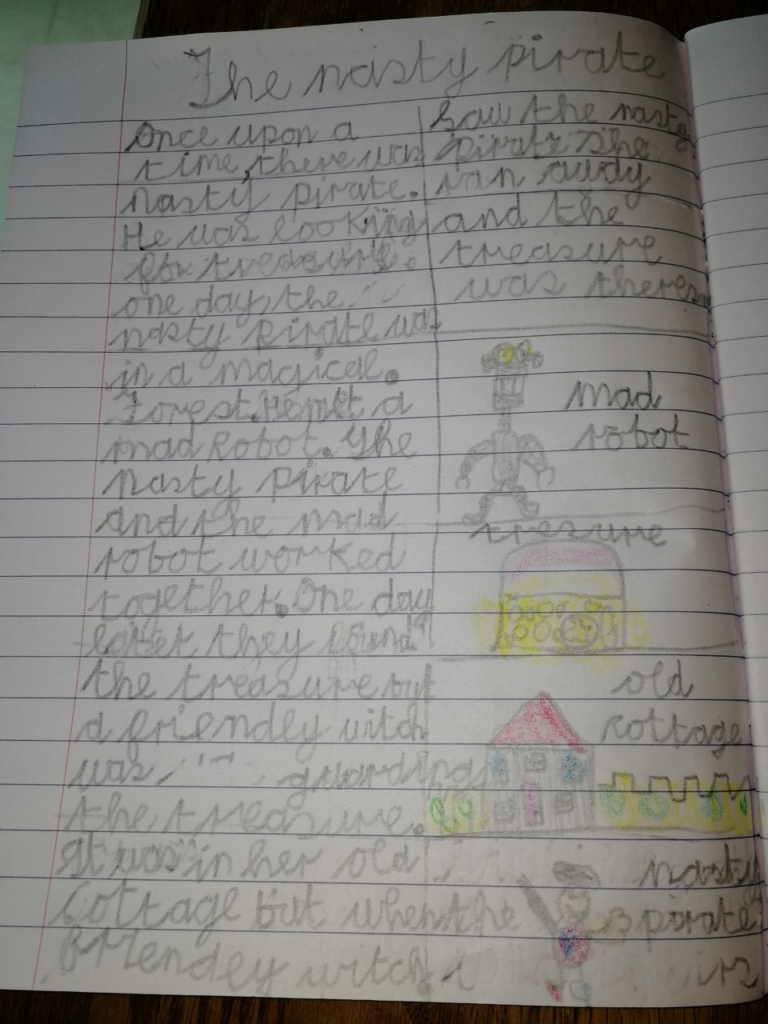 The nasty pirate
Once upon a
time, there was
nasty pirate.
He was looking
for treasure.
one day, the
nasty pirate was
in a magical.
Forest. He met a
mad robot. The
nasty pirate
and the mad
robot worked
together. One day
later they found
the treasure but
a friendley witch
was guarding
the treasure.
It was in her old
cottage but when the
friendley witch
saw the nasty
pirate she
ran away
and the
treasure
was theres
mad
robot
tresure
old
cottage
nasty
pirate